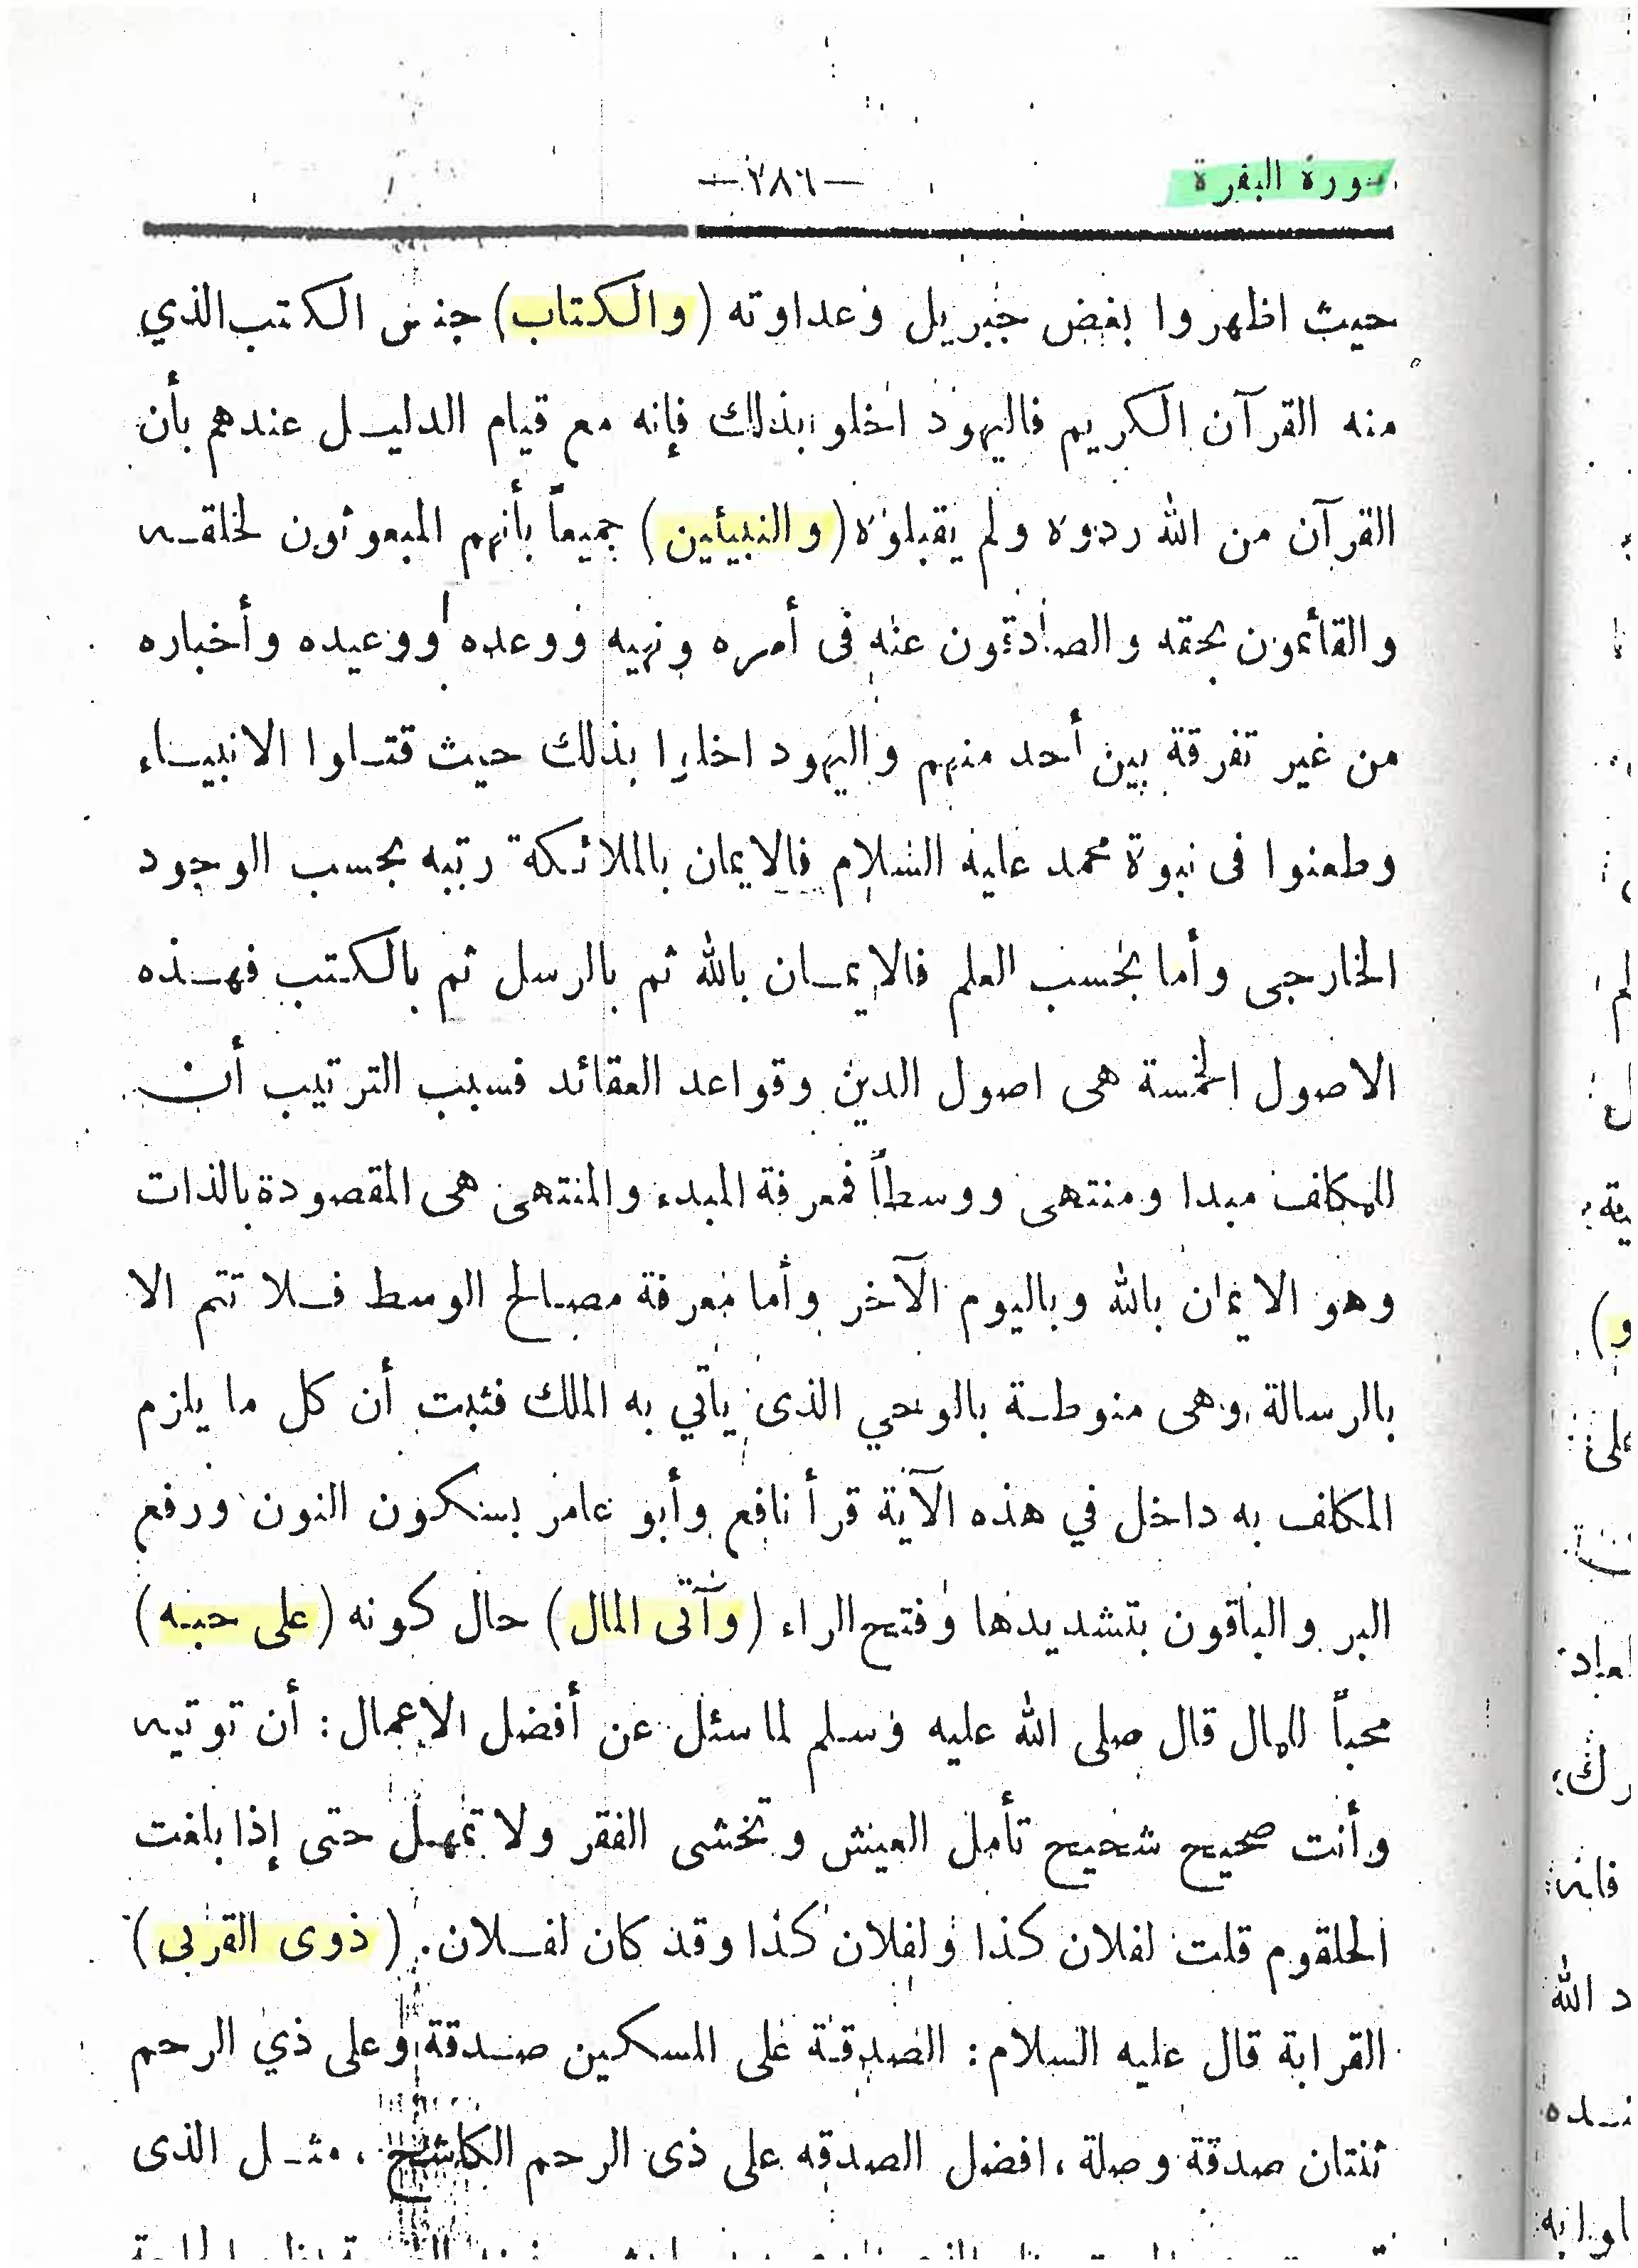 سورة البقرة
—٢٨٦—
حيث اظهروا بغض جبريل وعداوته (والكتاب) جنس الكتب الذي
منه القرآن الكريم فاليهود اخلوا بذلك فإنه مع قيام الدليل عندهم بأن
القرآن من الله ردوه ولم يقبلوه (والنبيئين) جميعاً بأنهم المبعوثون لخلقه
والقائمون بحقه والصادقون عنه فى أمره ونهيه ووعده ووعيده وأخباره
من غير تفرقة بين أحد منهم واليهود اخلوا بذلك حيث قتلوا الانبياء
وطعنوا فى نبوة محمد عليه السلام فالايمان بالملائكة رتبه بحسب الوجود
الخارجى وأما بحسب العلم فالايمان بالله ثم بالرسل ثم بالكتب فهذه
الاصول الخمسة هى اصول الدين وقواعد العقائد فسبب الترتيب أن
للمكلف مبدا ومنتهى ووسطاً فمعرفة المبدء والمنتهى هى المقصودة بالذات
وهو الايمان بالله وباليوم الآخر وأما معرفة مصالح الوسط فلا تتم الا
بالرسالة وهى منوطة بالوحي الذى يأتي به الملك فثبت أن كل ما يلزم
المكلف به داخل في هذه الآية قرأ نافع وأبو عامر بسنكون النون ورفع
البر والباقون بتشديدها وفتح الراء (وآتى المال) حال كونه (على حبه)
محباً للمال قال صلى الله عليه وسلم لما سئل عن أفضل الاعمال: أن توتيه
وأنت صحيح شحيح تأمل العيش وتخشى الفقر ولا تمهل حتى إذا بلغت
الحلقوم قلت لفلان كذا ولفلان كذا وقد كان لفلان. (ذوى القربى)
القرابة قال عليه السلام: الصدقة على المسكين صدقة وعلى ذي الرحم
ثنتان صدقة وصلة، افضل الصدقه على ذى الرحم الكاشح، مثل الذى